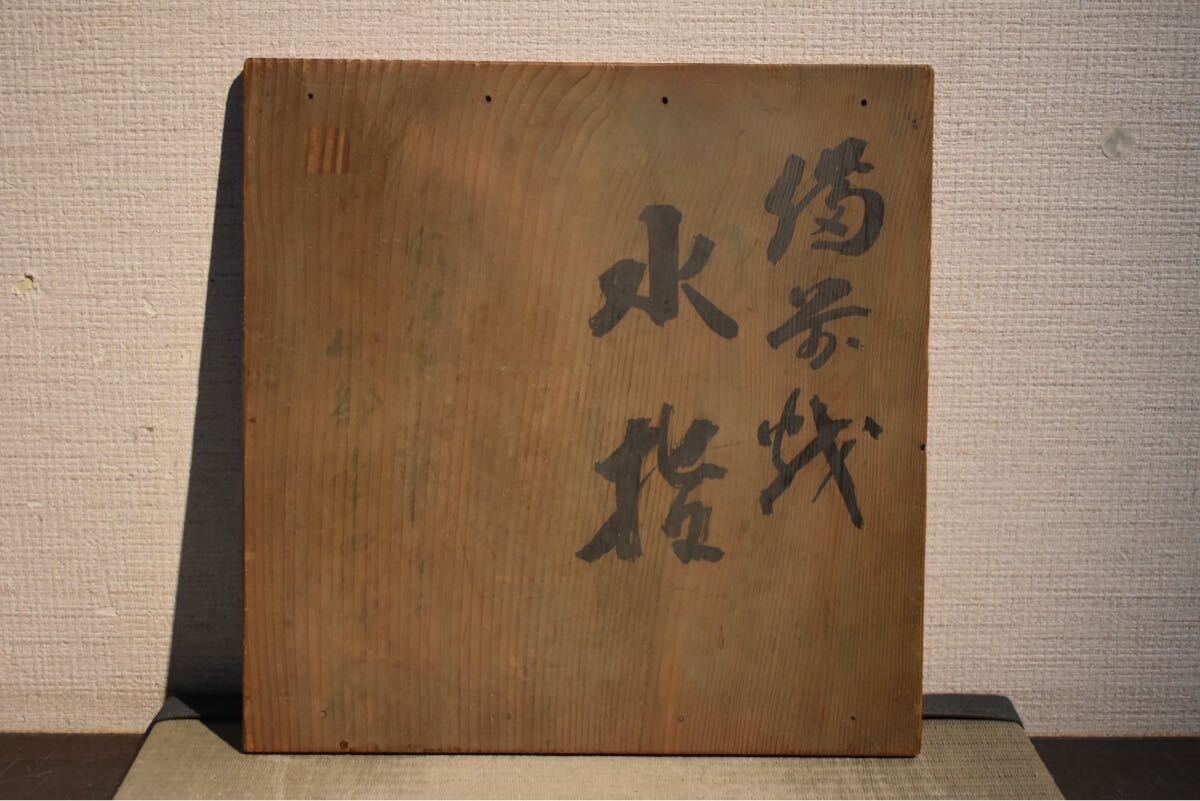 備前焼
水指